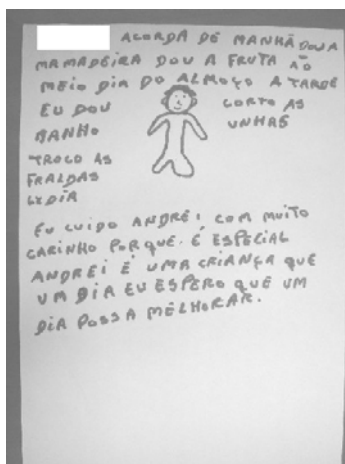 ACORDA DE MANHÃ DOU A
MAMADEIRA DOU A FRUTA AO
MEIO DIA DO ALMOÇO A TARDE
EU DOU CORTO AS
BANHO UNHAS
TROCO AS
FRALDAS
LYDIA
EU CUIDO ANDREI COM MUITO
CARINHO PORQUE. É ESPECIAL
ANDREI É UMA CRIANÇA QUE
UM DIA EU ESPERO QUE UM
DIA POSSA MELHORAR.